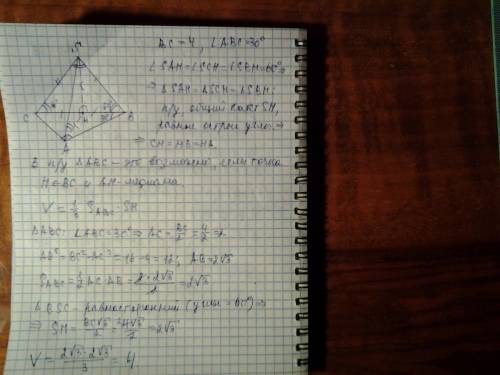 S
C
B
A
H
BC = 4, ∠ABC = 30°
∠SAH = ∠SCH = ∠SBH = 60° ⇒
⇒ ΔSAH = ΔSCH = ΔSBH:
п/у, общий катет SH,
равные острые углы ⇒
⇒ CH = HB = HA.
В п/у ΔABC – это возможно, если точка
H ∈ BC и AH – медиана.
V = 1/3 S_ABC · SH
ΔABC: ∠ABC = 30° ⇒ AC = BC/2 = 4/2 = 2
AB² = BC² - AC² = 16 - 4 = 12; AB = 2√3
S_ABC = 1/2 AC · AB = 2√3
– равносторонний (углы = 60°) ⇒
⇒ SH = BC√3/2 = 4√3/2 = 2√3
V = 2√3 · 2√3 / 3 = 4